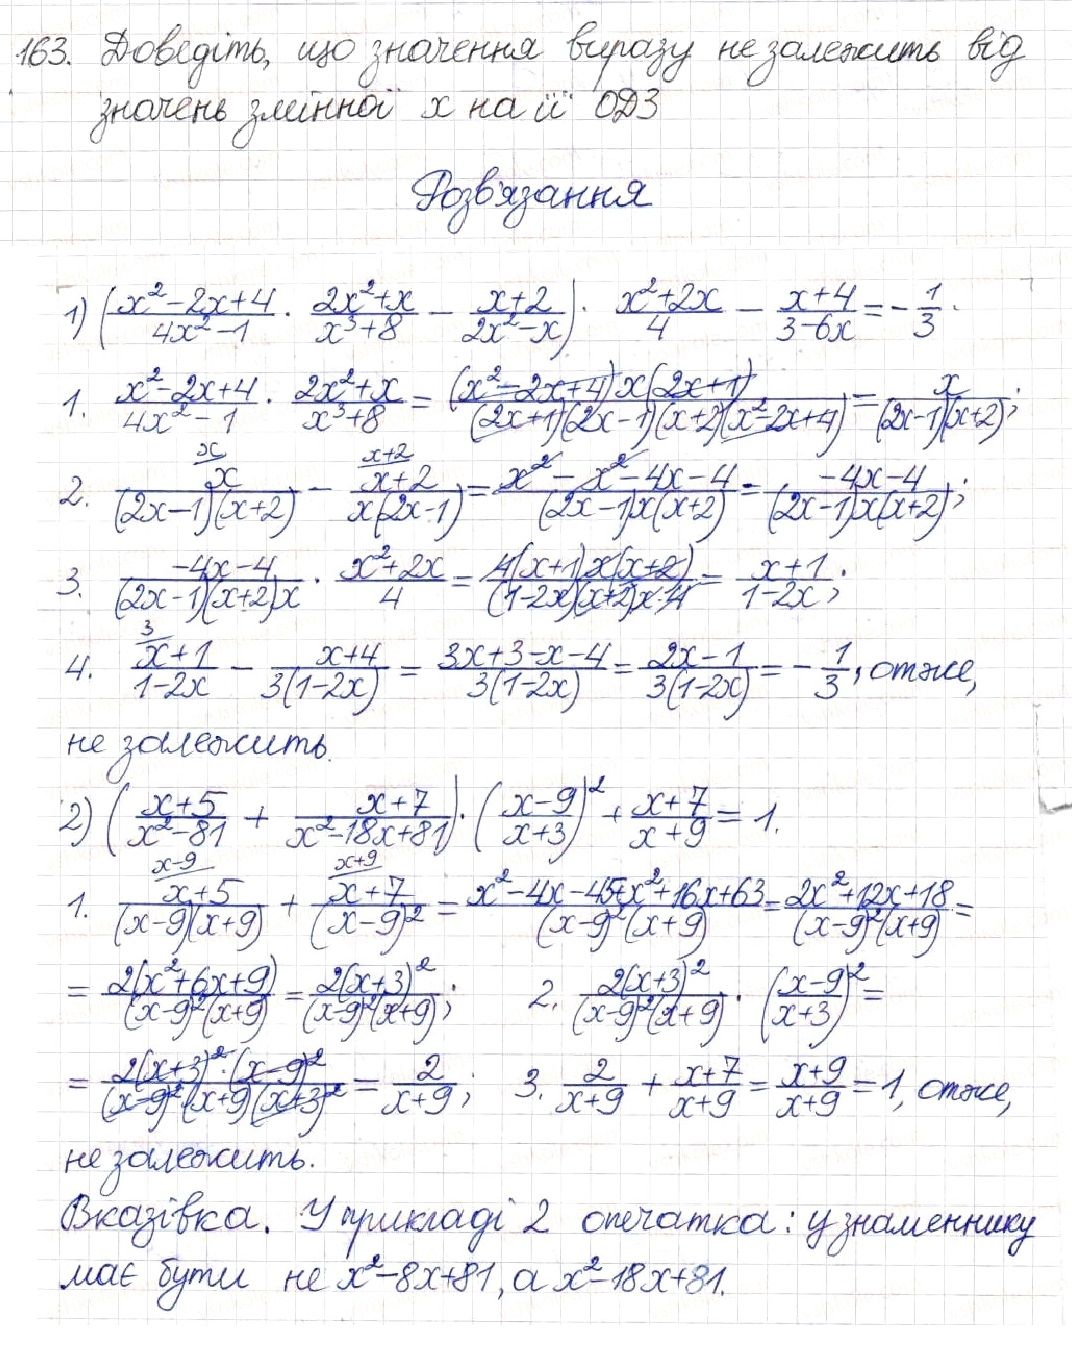 163. Доведіть, що значення виразу не залежить від
значень змінної x на її ОДЗ
Розв'язання
1) ((x²-2x+4)/(4x²-1) · (2x²+x)/(x³+8) - (x+2)/(2x²-x)) · (x²+2x)/4 - (x+4)/(3-6x) = -1/3.
1. (x²-2x+4)/(4x²-1) · (2x²+x)/(x³+8) = ((x²-2x+4)x(2x+1))/((2x+1)(2x-1)(x+2)(x²-2x+4)) = x/((2x-1)(x+2));
2. x/((2x-1)(x+2)) - (x+2)/(x(2x-1)) = (x²-x²-4x-4)/((2x-1)x(x+2)) = (-4x-4)/((2x-1)x(x+2));
3. (-4x-4)/((2x-1)(x+2)x) · (x²+2x)/4 = (4(x+1)x(x+2))/((1-2x)(x+2)x·4) = (x+1)/(1-2x);
4. (x+1)/(1-2x) - (x+4)/(3(1-2x)) = (3x+3-x-4)/(3(1-2x)) = (2x-1)/(3(1-2x)) = -1/3, отже,
не залежить.
2) ((x+5)/(x²-81) + (x+7)/(x²-18x+81)) · ((x-9)/(x+3))² + (x+7)/(x+9) = 1.
1. (x+5)/((x-9)(x+9)) + (x+7)/((x-9)²) = (x²-4x-45+x²+16x+63)/((x-9)²(x+9)) = (2x²+12x+18)/((x-9)²(x+9)) =
= (2(x²+6x+9))/((x-9)²(x+9)) = (2(x+3)²)/((x-9)²(x+9)); 2. (2(x+3)²)/((x-9)²(x+9)) · ((x-9)/(x+3))² =
= (2(x+3)²·(x-9)²)/((x-9)²·(x+9)(x+3)²) = 2/(x+9); 3. 2/(x+9) + (x+7)/(x+9) = (x+9)/(x+9) = 1, отже,
не залежить.
Вказівка. У прикладі 2 опечатка: у знаменнику
має бути не x²-8x+81, а x²-18x+81.